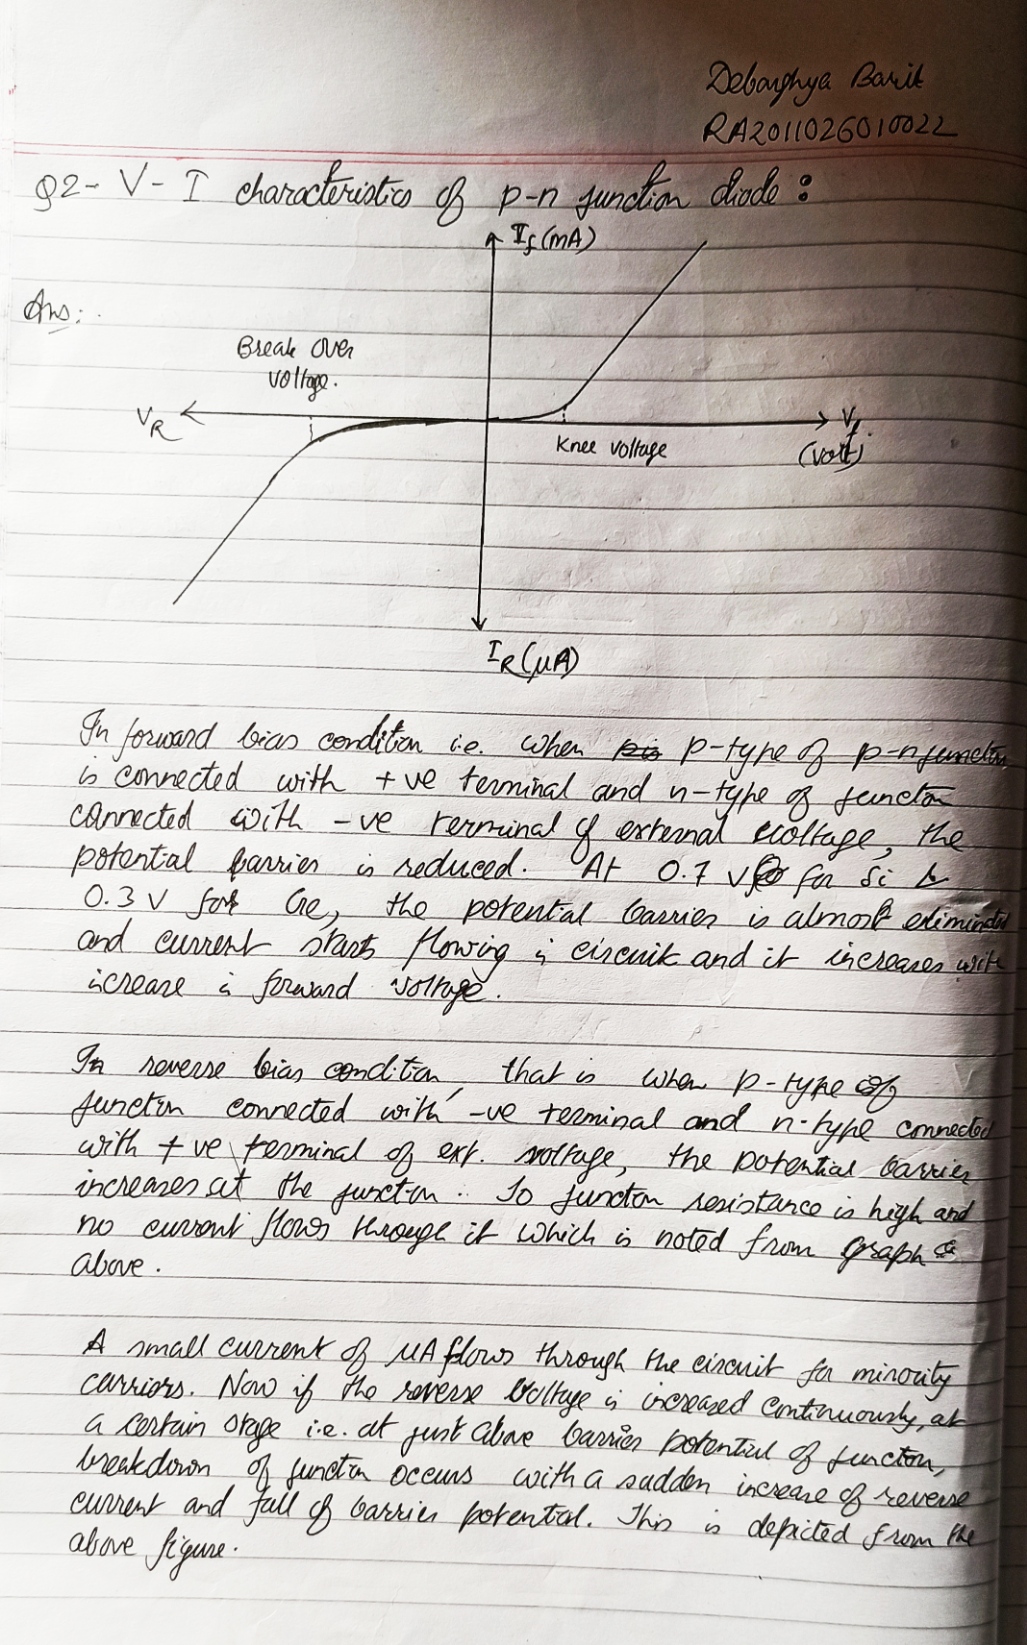 Debarghya Barik
RA2011026010022
Q2- V-I characteristics of p-n junction diode :
If (mA)
Ans:
Break over
voltage.
VR
Vf
Knee voltage
(volt)
IR (μA)
In forward bias condition i.e. when p-type of p-n junction
is connected with +ve terminal and n-type of juncton
connected with -ve terminal of external voltage, the
potential barrier is reduced. At 0.7 V for Si &
0.3 V for Ge, the potential barrier is almost eliminated
and current starts flowing in circuit and it increases with
increase in forward voltage.
In reverse bias condition, that is when p-type of
junction connected with -ve terminal and n-type connected
with +ve terminal of ext. voltage, the potential barrier
increases at the junction. So juncton resistance is high and
no current flows through it which is noted from graph
above.
A small current of μA flows through the circuit for minority
carriors. Now if the reverse voltage is increased continuously, at
a certain stage i.e. at just above barrier potential of junction,
breakdown of junction occurs with a sudden increase of reverse
current and fall of barrier potential. This is depicted from the
above figure.